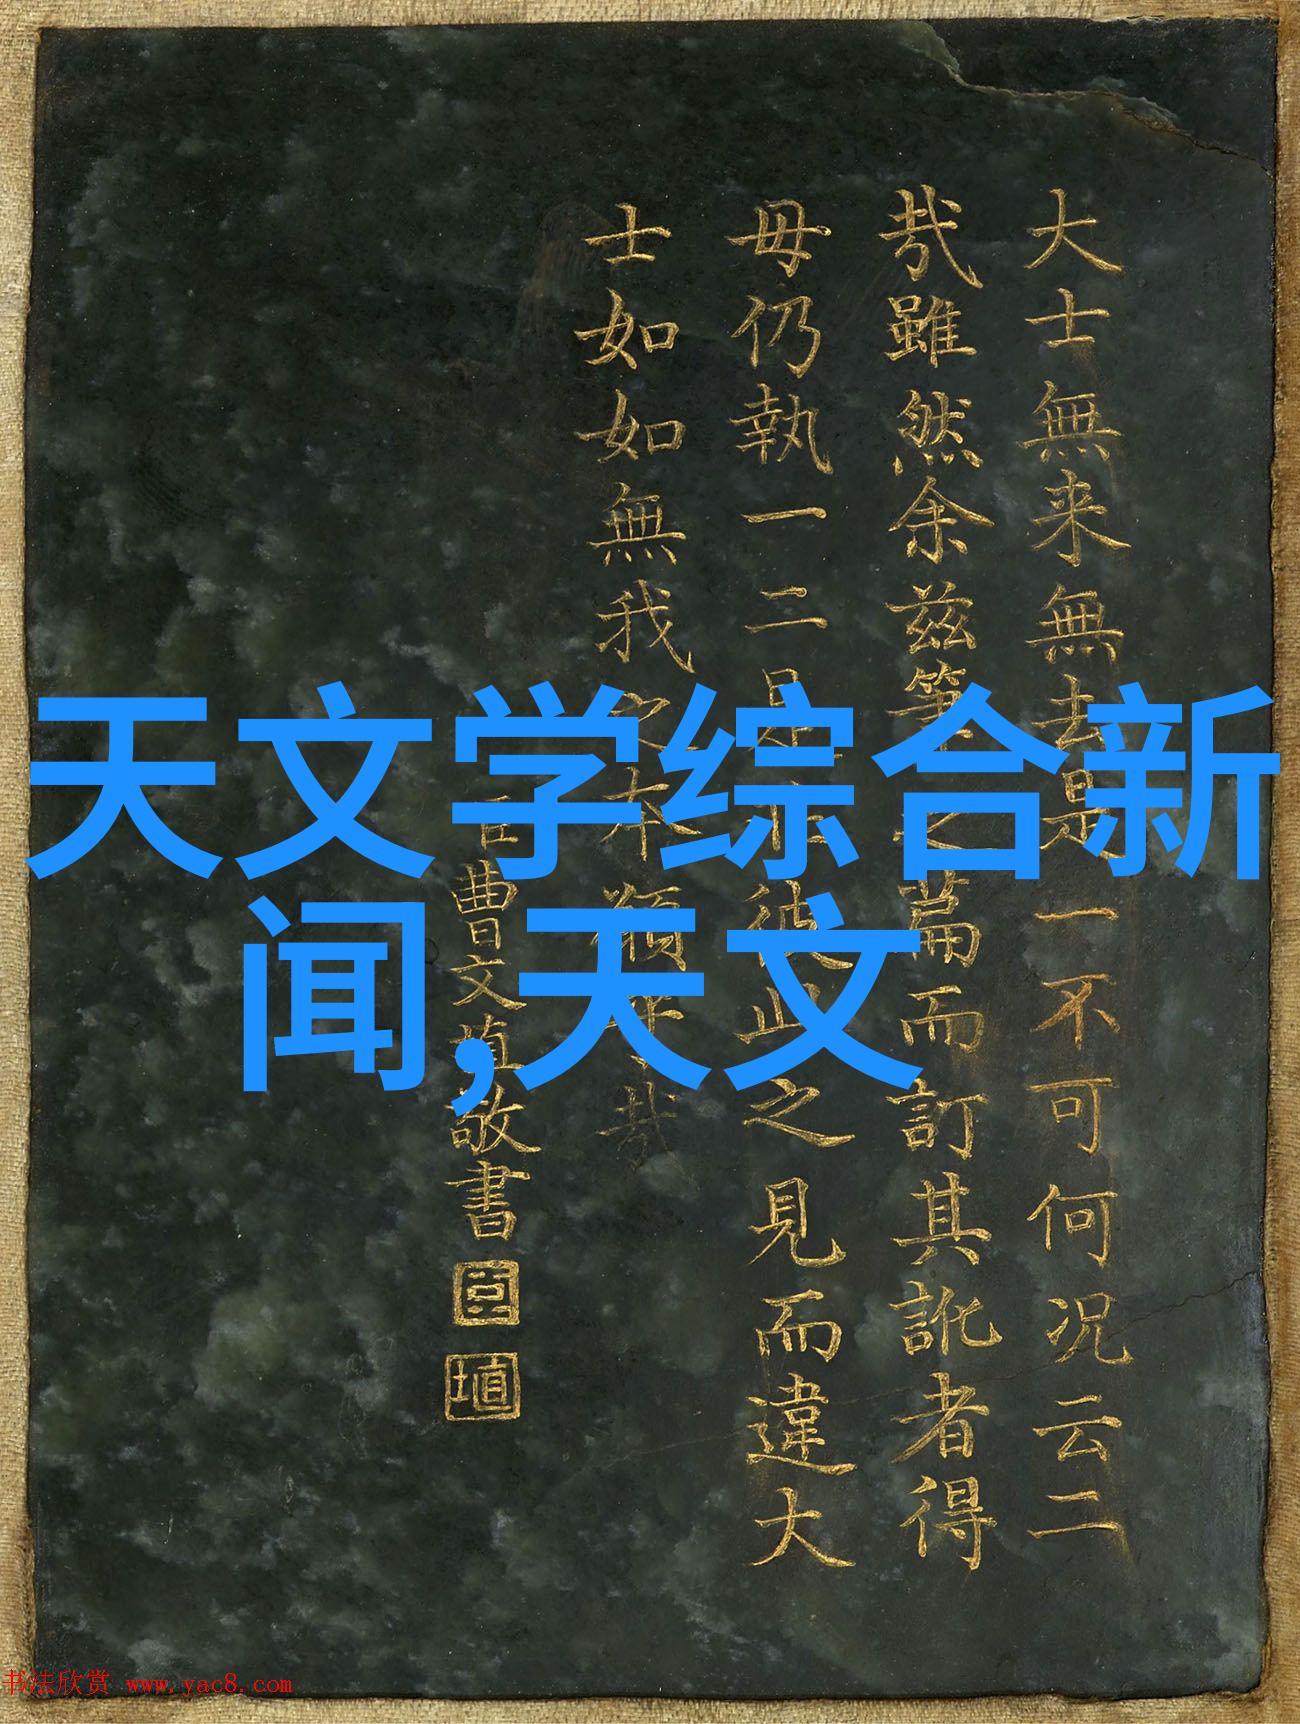 天文学综合新
闻,天文
大士無来無去是一不可何况云二
哉雖然余兹筆之篇而訂其訛者得
毋仍執一二是彼此之見而違大
士如如無我之本願哉
臣曹文埴敬書
臣
埴
书法欣赏 www.yac8.com